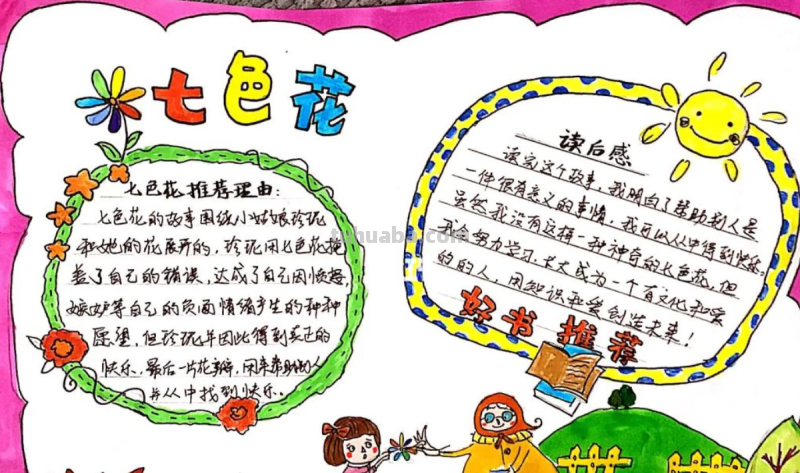 七色花
七色花推荐理由:
七色花的故事围绕小姑娘珍妮
和她的花展开的,珍妮用七色花掩
盖了自己的错误,达成了自己因愤怒,
嫉妒等自己的负面情绪产生的种种
愿望,但珍妮并因此得到真正的
快乐,最后一片花瓣,用来帮助别人
并从中找到快乐。
读后感
读完这个故事,我明白了帮助别人是
一件很有意义的事情,我可以从中得到快乐。
虽然我没有这样一种神奇的七色花,但
我会努力学习,长大成为一个有文化和爱
的的人,用知识和爱创造未来!
好书推荐